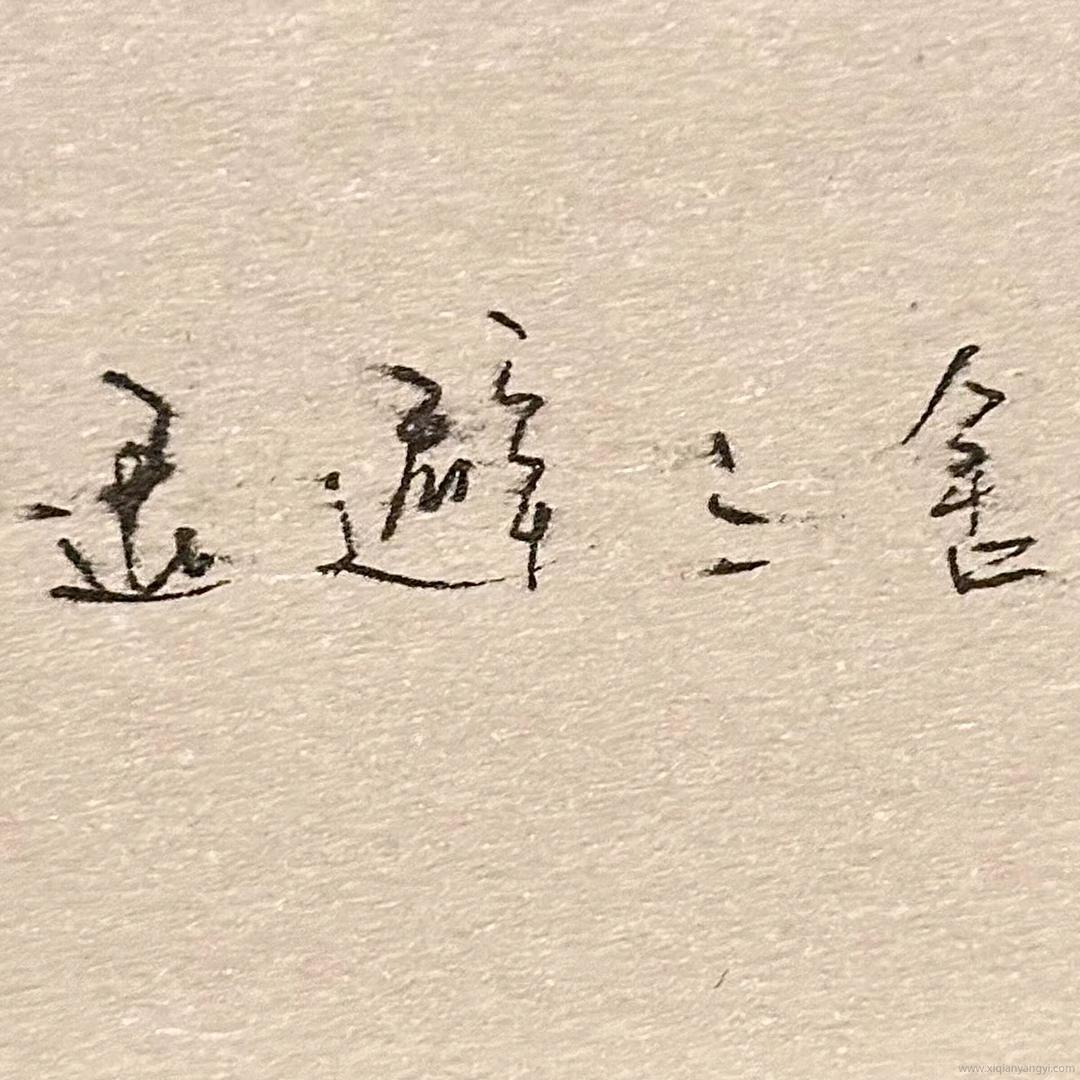 退避三舍
www.xiqianyangyi.com